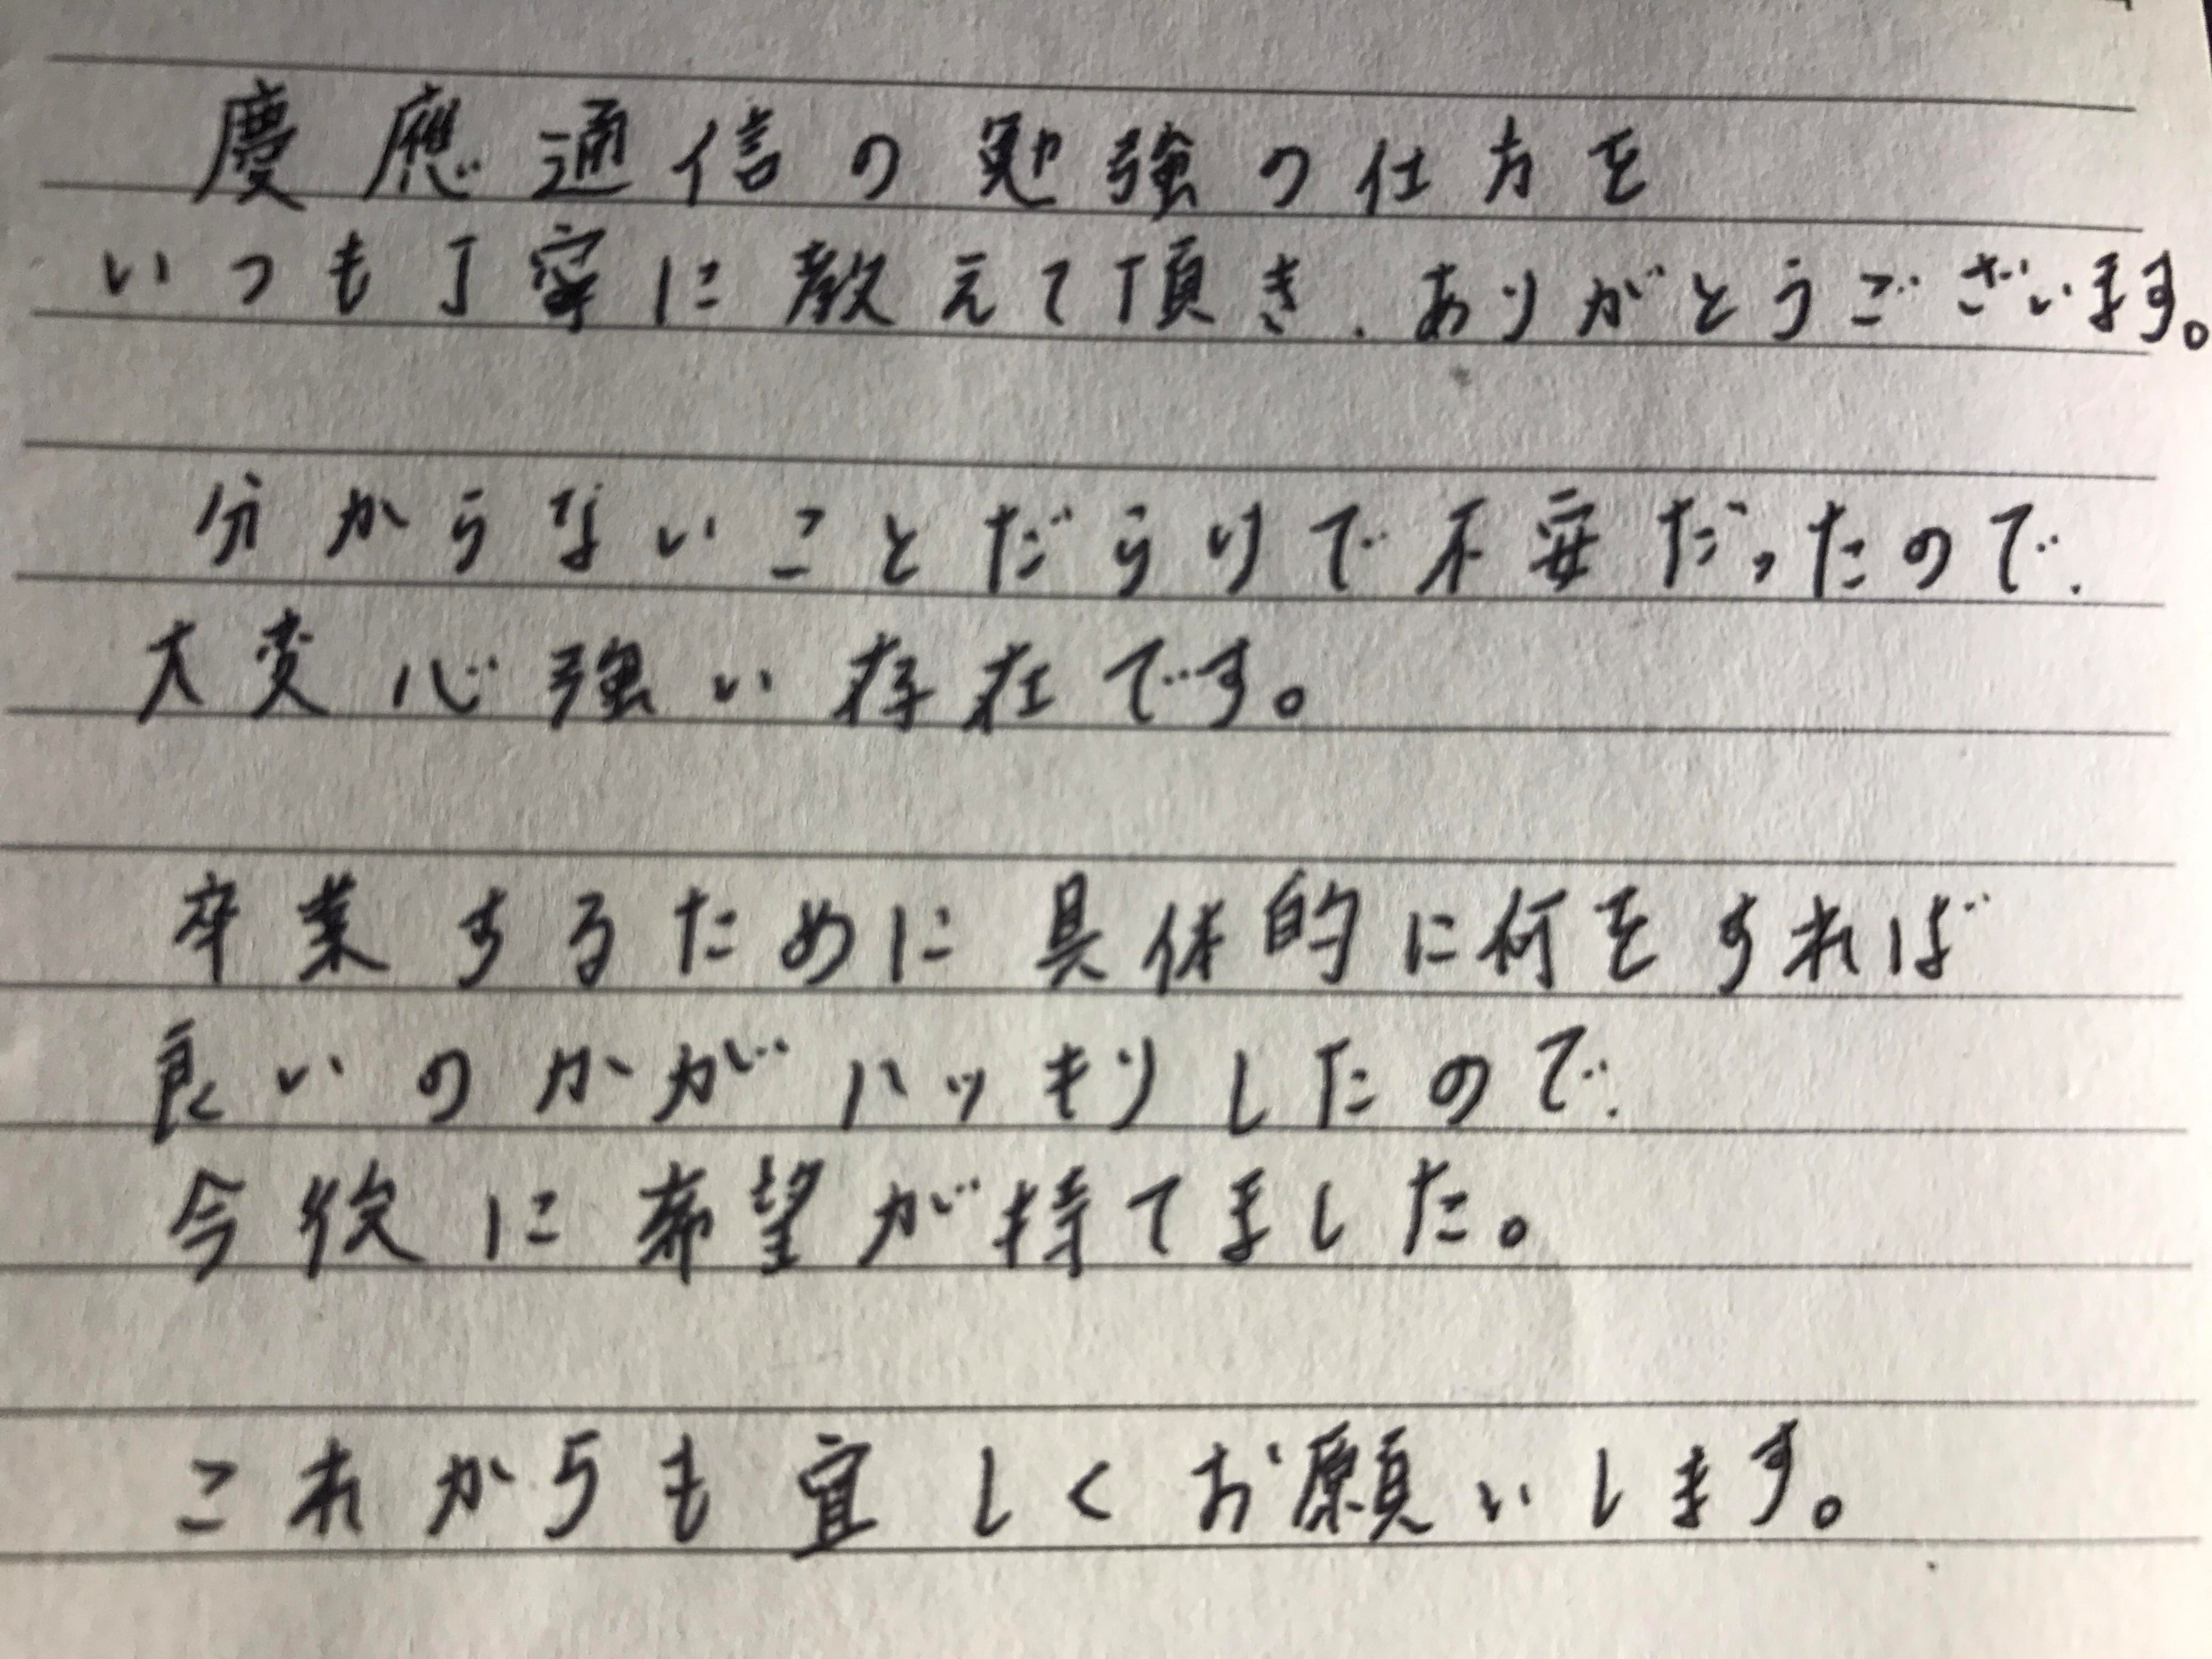 慶應通信の勉強の仕方を
いつも丁寧に教えて頂き、ありがとうございます。
分からないことだらけで不安だったので、
大変心強い存在です。
卒業するために具体的に何をすれば
良いのかがハッキリしたので、
今後に希望が持てました。
これからも宜しくお願いします。